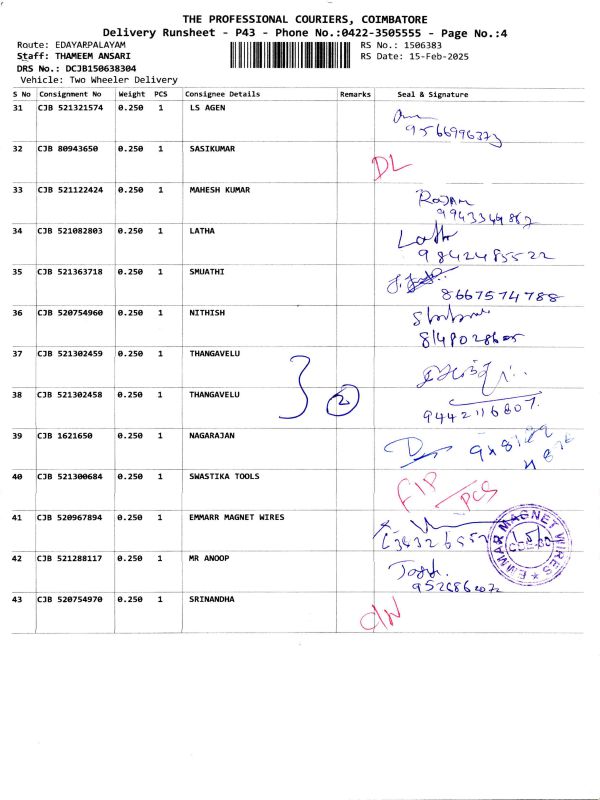 THE PROFESSIONAL COURIERS, COIMBATORE
Delivery Runsheet - P43 - Phone No.:0422-3505555 - Page No.:4
Route: EDAYARPALAYAM RS No.: 1506383
Staff: THAMEEM ANSARI RS Date: 15-Feb-2025
DRS No.: DCJB150638304
Vehicle: Two Wheeler Delivery
S No Consignment No Weight PCS Consignee Details Remarks Seal & Signature
31 CJB 521321574 0.250 1 LS AGEN
9566996373
32 CJB 80943650 0.250 1 SASIKUMAR DL
33 CJB 521122424 0.250 1 MAHESH KUMAR Rajam
9943349862
34 CJB 521082803 0.250 1 LATHA Latha
9842485522
35 CJB 521363718 0.250 1 SMUATHI
8667574788
36 CJB 520754960 0.250 1 NITHISH
37 CJB 521302459 0.250 1 THANGAVELU
38 CJB 521302458 0.250 1 THANGAVELU 2
9442116807
39 CJB 1621650 0.250 1 NAGARAJAN
40 CJB 521300684 0.250 1 SWASTIKA TOOLS
41 CJB 520967894 0.250 1 EMMARR MAGNET WIRES
EMMAR MAGNET WIRES
42 CJB 521288117 0.250 1 MR ANOOP
9526862072
43 CJB 520754970 0.250 1 SRINANDHA